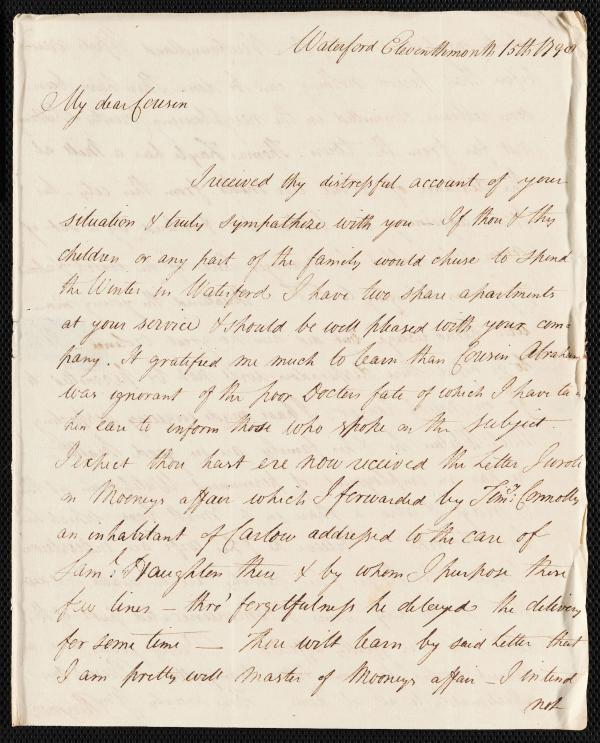 Waterford Eleventhmonth 15th 1798
My dear Cousin
I received thy distressful account of your
situation & truly sympathize with you If thou & thy
children or any part of the family would chuse to spend
the Winter in Waterford I have two spare apartments
at your service & should be well pleased with your com=
pany. It gratified me much to learn than Cousin Abraham
was ignorant of the poor Doctors fate of which I have ta=
ken care to inform those who spoke on the subject.
I expect thou hast ere now received the Letter I wrote
on Mooneys affair which I forwarded by Timy: Connolly
an inhabitant of Carlow addressed to the care of
Saml: Haughton there & by whom I purpose these
few lines – thro' forgetfulness he delayed the delivery
for some time — Thou wilt learn by said Letter that
I am pretty well master of Mooneys affair – I intend
not